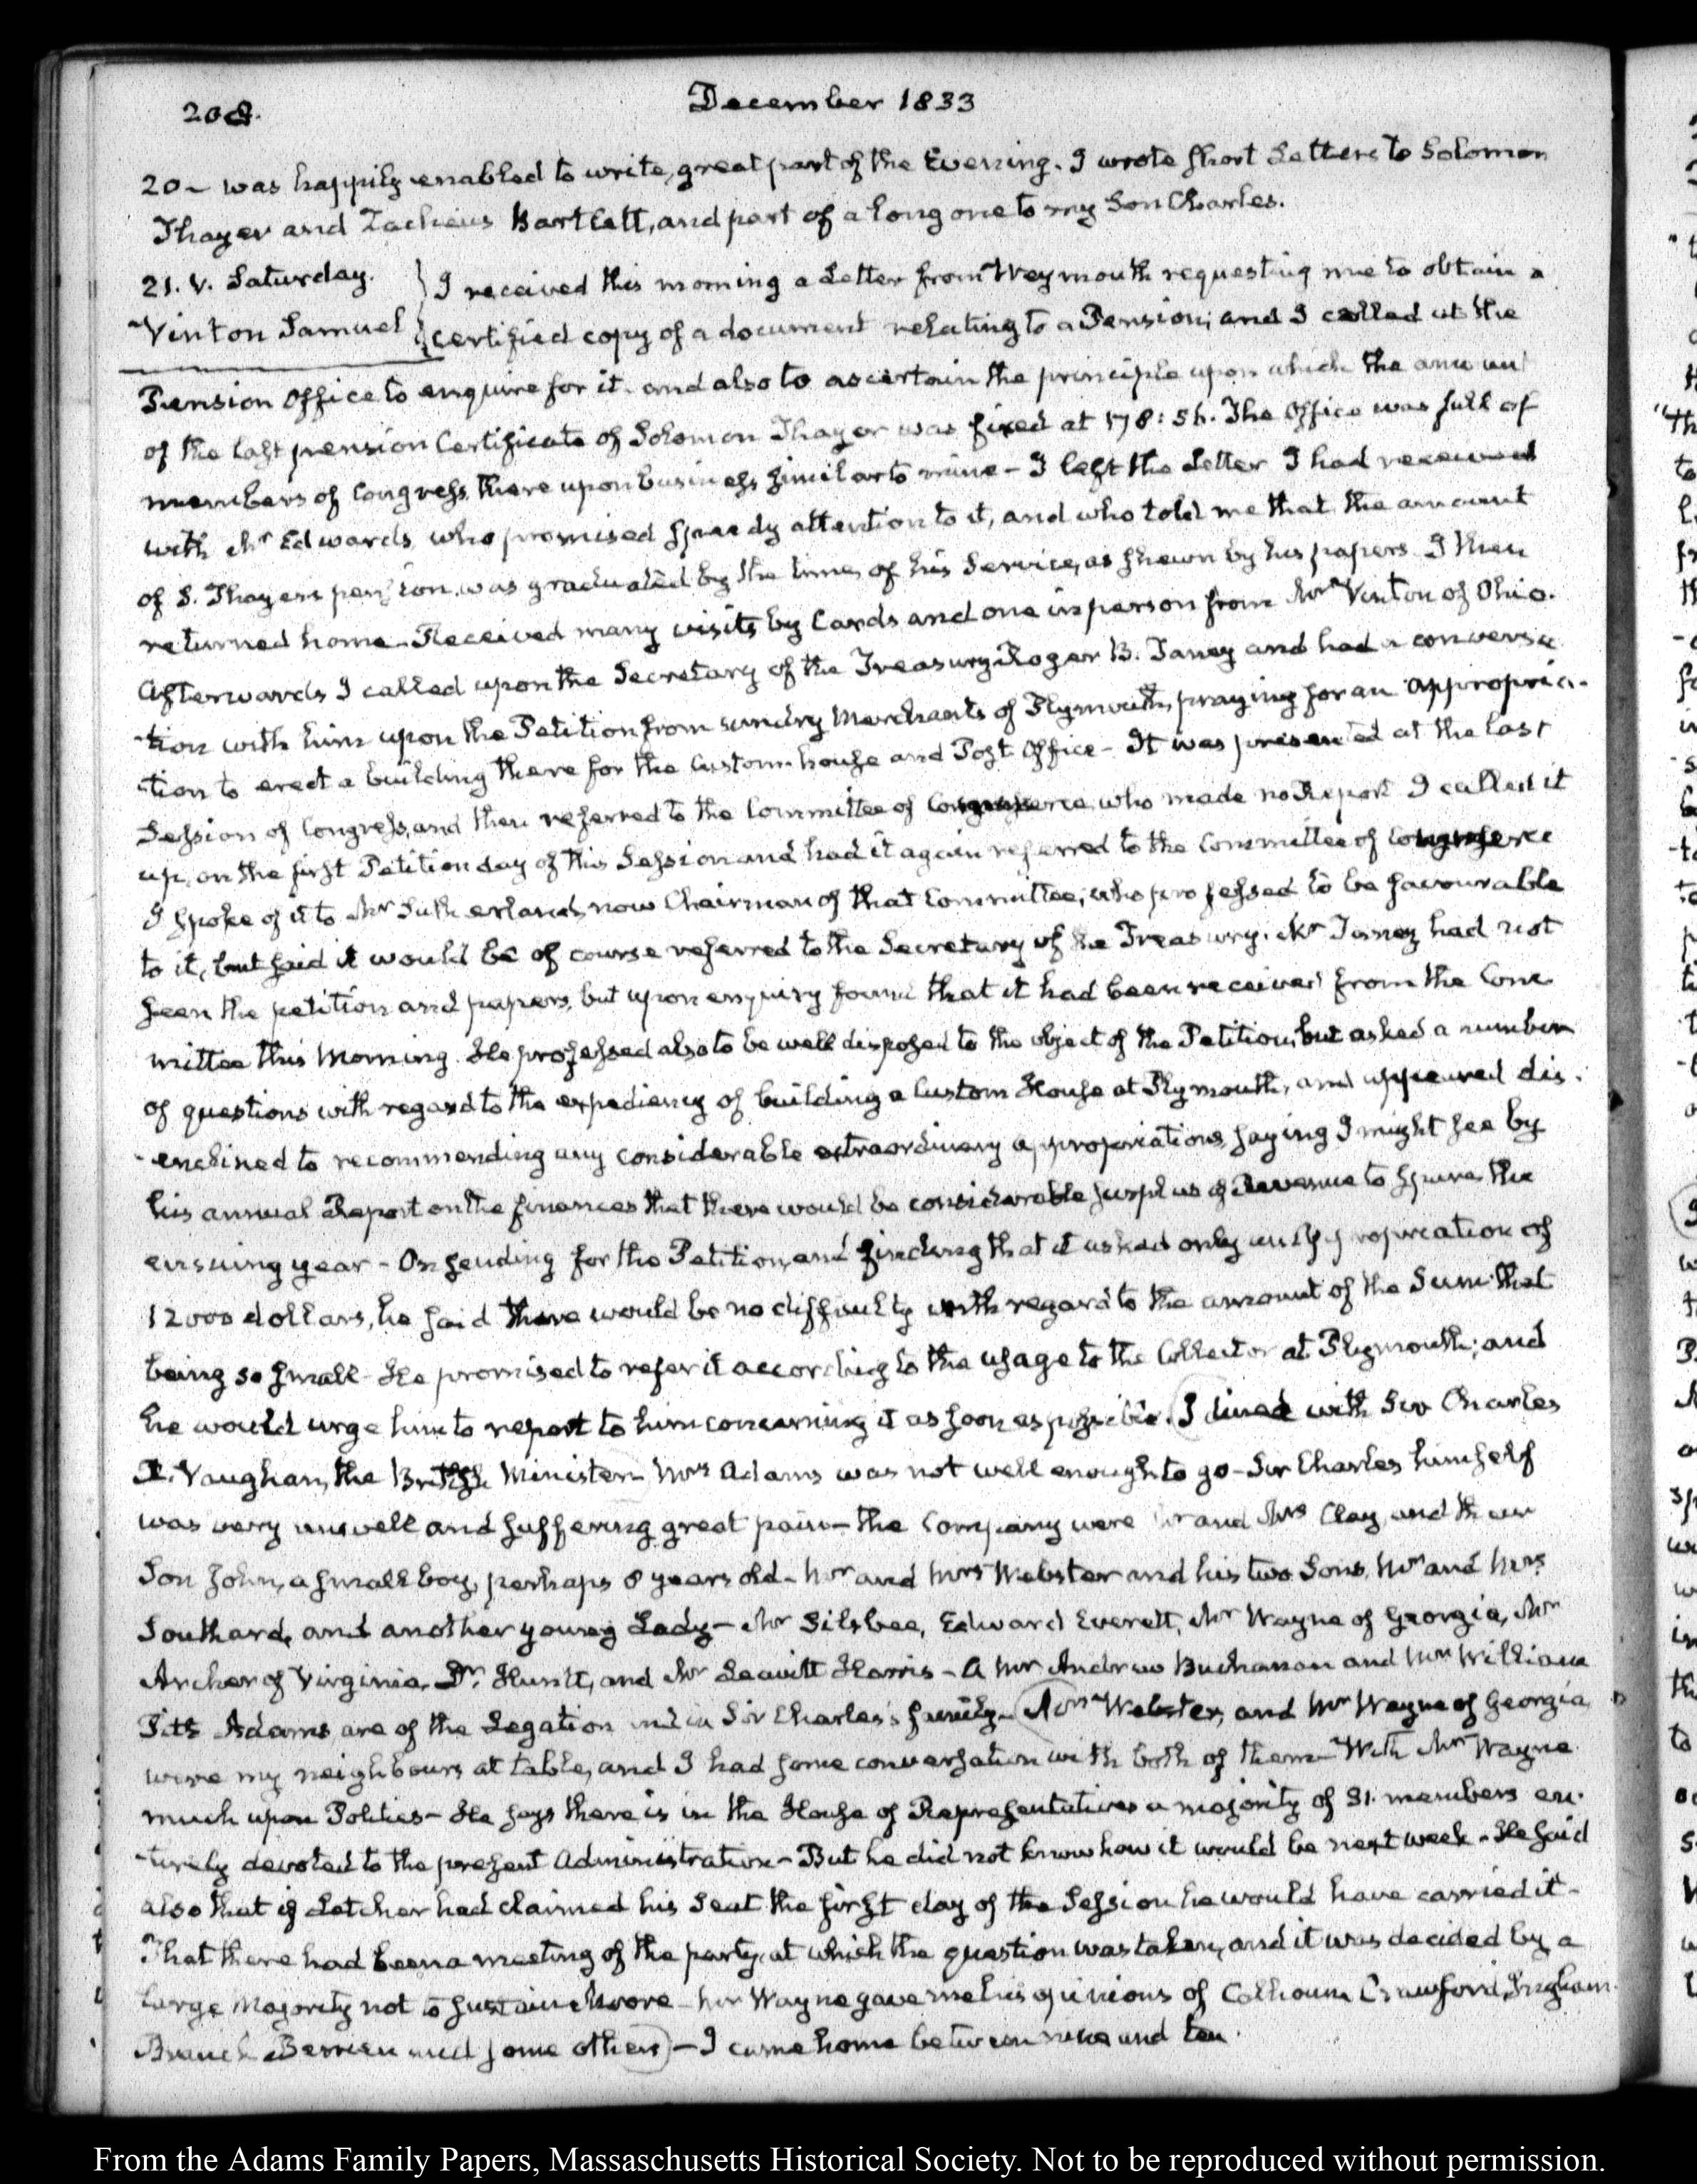 208.
December 1833
20 – was happily enabled to write, great part of the Evening. I wrote short Letters to Solomon
Thayer and Zacheus Bartlett, and part of a long one to my Son Charles.
21. V. Saturday.
Vinton Samuel
I received this morning a Letter from Weymouth requesting me to obtain a
certified copy of a document relating to a Pension; and I called at the
Pension Office to enquire for it and also to ascertain the principle upon which the amount
of the last pension Certificate of Solomon Thayer was fixed at The Office was full of
members of Congress, there upon business similar to mine – I left the Letter I had received
with Mr Edwards, who promised speedy attention to it, and who told me that the amount
of S. Thayers pension, was graduated by the time, of his Service, as shewn by his papers. I then
returned home – Received many visits by Cards and one in person from Mr Vinton of Ohio.
Afterwards I called upon the Secretary of the Treasury Roger B. Taney and had a conversa
-tion with him upon the Petition from sundry Merchants of Plymouth, praying for an appropria-
-tion to erect a building there for the Custom house and Post Office – It was presented at the last
Session of Congress, and then referred to the Committee of Commerce, who made no Report I called it
up, on the first Petition day of this Session and had it again referred to the Committee of Commerce
I spoke of it to Mr Sutherland, now Chairman of that Committee, who professed to be favourable
to it, but said it would be of course referred to the Secretary of the Treasury. Mr Taney had not
seen the petition and papers, but upon enquiry found that it had been received from the Com
mittee this Morning. He professed also to be well disposed to the object of the Petition, but asked a number
of questions with regard to the expediency of building a Custom House at Plymouth, and appeared dis-
-enclined to recommending any considerable extraordinary appropriations, saying I might see by
his annual Report on the finances that there would be considerable surplus of Revenue to spare the
ensuing year – On sending for the Petition, and finding that it asked only an appropriation of
12000 dollars, he said there would be no difficulty with regard to the amount of the Sum that
being so small – He promised to refer it according to the usage to the Collector at Plymouth; and
he would urge him to report to him concerning it as soon as possible. (I dined with Sir Charles
R. Vaughan, the British Minister – Mrs Adams was not well enough to go – Sir Charles himself
was very unwell and suffering great pain – the Company were Mr and Mrs Clay, and their
Son John, a small boy, perhaps 8 years old – Mr and Mrs Webster and his two Sons, Mr and Mrs
Southard, and another young Lady – Mr Silsbee, Edward Everett, Mr Wayne of Georgia, Mr
Archer of Virginia, Dr. Huntt, and Mr Leavitt Harris – A Mr Andrew Buchanan and Mr William
Pitt Adams are of the Legation and in Sir Charles's family – Mrs Webster, and Mr Wayne of Georgia
were my neighbours at table, and I had some conversation with both of them – With Mr Wayne
much upon Politics – He says there is in the House of Representatives a majority of 31. members en-
-tirely devoted to the present Administration – But he did not know how it would be next week – He said
also that if Letcher had claimed his Seat the first day of the Session he would have carried it –
That there had been a meeting of the party, at which the question was taken, and it was decided by a
large Majority not to sustain Moore – Mr Wayne gave me his opinions of Calhoun, Crawford, Ingham
Branch, Berrien and some others) – I came home between nine and ten.
From the Adams Family Papers, Massachusetts Historical Society. Not to be reproduced without permission.